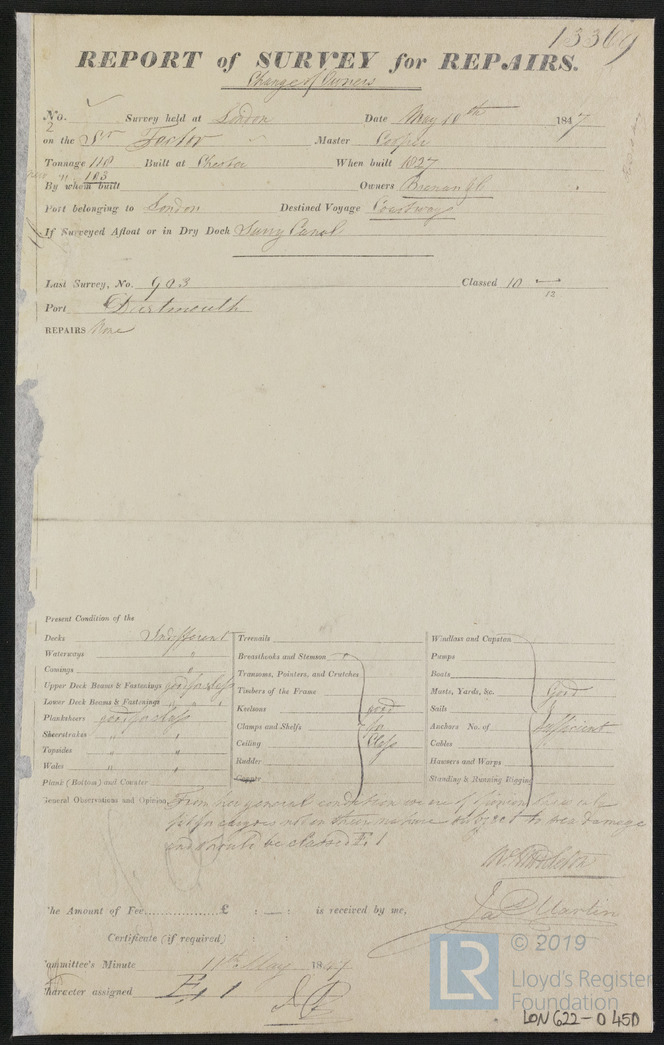 13369
REPORT of SURVEY for REPAIRS.
Change of Owners
No. 2 Survey held at London Date May 10th 1847
on the Sr Master Cooper
Tonnage 118 Built at Chester When built 1827
103
By whom built Owners
Port belonging to London Destined Voyage Coastways
If Surveyed Afloat or in Dry Dock Surry Canal
Last Survey, No. 903 Classed 10
13
Port Dartmouth
REPAIRS None
Present Condition of the
Decks Indifferent Treenails Windlass and Capstan
Waterways " Breasthooks and Stemson Pumps
Comings " Transoms, Pointers, and Crutches Boats
Upper Deck Beams & Fastenings good for class Timbers of the Frame Masts, Yards, &c. Good
Lower Deck Beams & Fastenings " " " Keelsons good Sails &
Planksheers good for class Clamps and Shelfs for Anchors No. of Sufficient
Sheerstrakes " " Ceiling Class Cables
Topsides " " Rudder Hawsers and Warps
Wales " " Copper Standing & Running Rigging
Plank (Bottom) and Counter
General Observations and Opinion, From her general condition we are of opinion she is
fit for cargoes not in their nature subject to sea damage
and should be classed E. 1
W. Middleton
Jas Martin
The Amount of Fee............ £ : — : is received by me,
Certificate (if required) : :
Committee's Minute 11th May 1847
Character assigned E, 1
LR © 2019
Lloyd's Register
Foundation
LON 622-0450